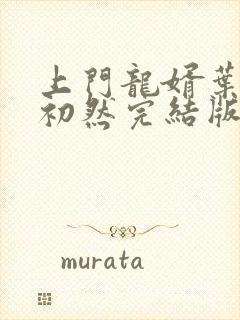 上門龍婿葉
初然完結版
murata